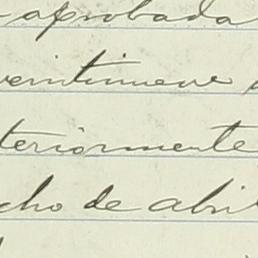 aprobada
veintinueve
teriormente
cho de abril